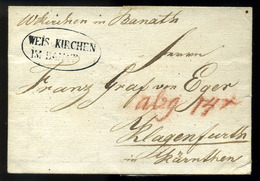 Wskirchen in Banath
WEIS-KIRCHEN
IM BANAT
Herrn
Franz Graf von Eger
abg 14x
Klagenfurth
in Kärnthen